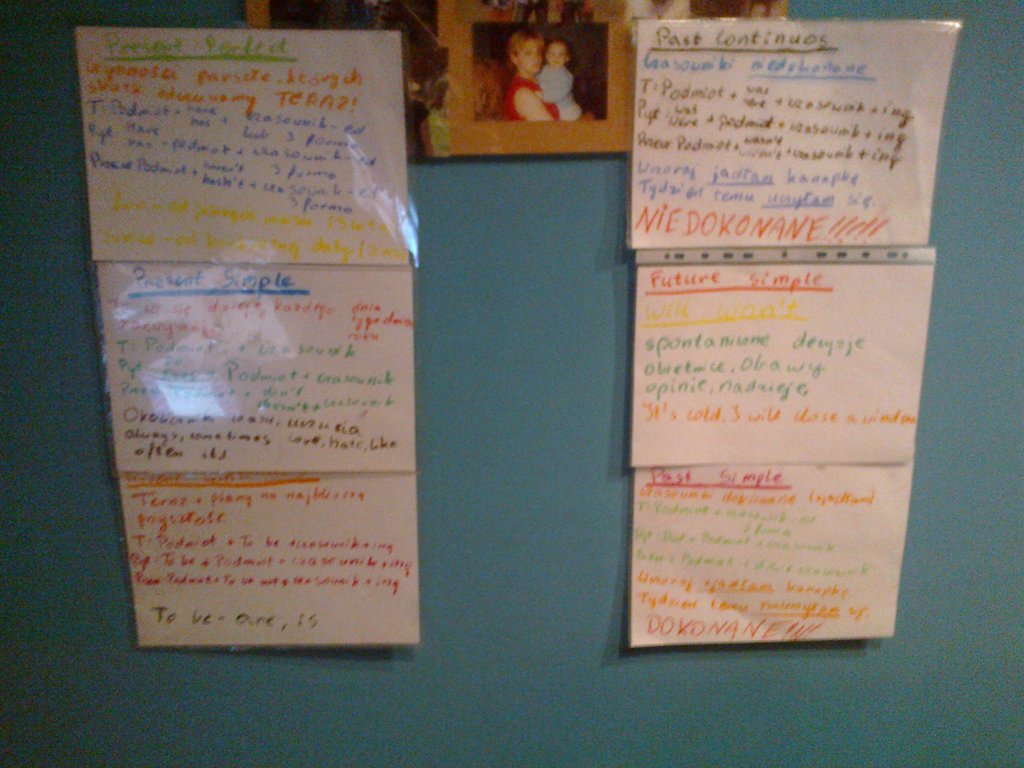 Present Perfect
czynności przeszłe, których
skutki odczuwamy TERAZ!
T: Podmiot + have has + czasownik - ed
lub 3 forma
Pyt have has - podmiot + czasownik - ed
3 forma
Przecz Podmiot + haven't hasn't + czasownik - ed
3 forma
Present Simple
To co się dzieje, każdego dnia
tygodnia
roku
T: Podmiot + czasownik
Podmiot + czasownik
don't
doesn't + czasownik
always, sometimes love, hate, like
often
Teraz + plany na najbliższą
przyszłość
T: Podmiot + To be + czasownik + ing
Pyt: To be + Podmiot + czasownik + ing
Przecz Podmiot + To be not + czasownik + ing
To be - are, is
Past Continuos
Czasowniki niedokonane
T: Podmiot + was were + czasownik + ing
Pyt was were + podmiot + czasownik + ing
Przecz Podmiot + wasn't weren't + czasownik + ing
Wczoraj jadłam kanapkę
Tydzień temu uczyłam się.
NIEDOKONANE!!!!!
Future Simple
will won't
spontaniczne decyzje
obietnice, Obawy
opinie, nadzieje,
It's cold. I will close a window
Past Simple
czasowniki dokonane (zjadłam)
T: Podmiot + czasownik ed
2 forma
Pyt: Did + Podmiot + czasownik
Przecz: Podmiot + didn't czasownik
Wczoraj zjadłam kanapkę.
Tydzień temu nauczyłam się.
DOKONANE!!!!